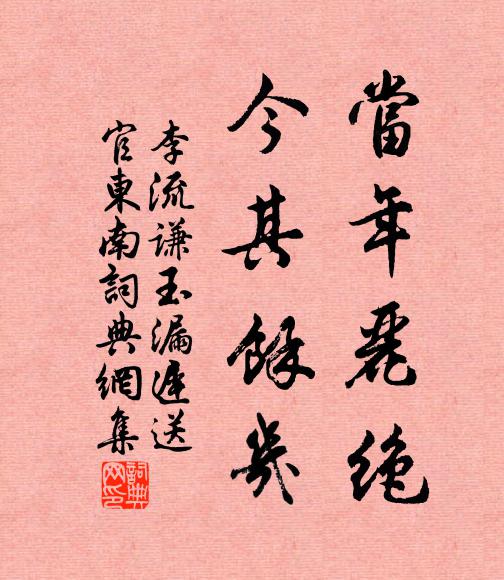 當年麗絕
今其餘幾
李流謙玉漏遲送
官東南詞典網集
詞典
网印